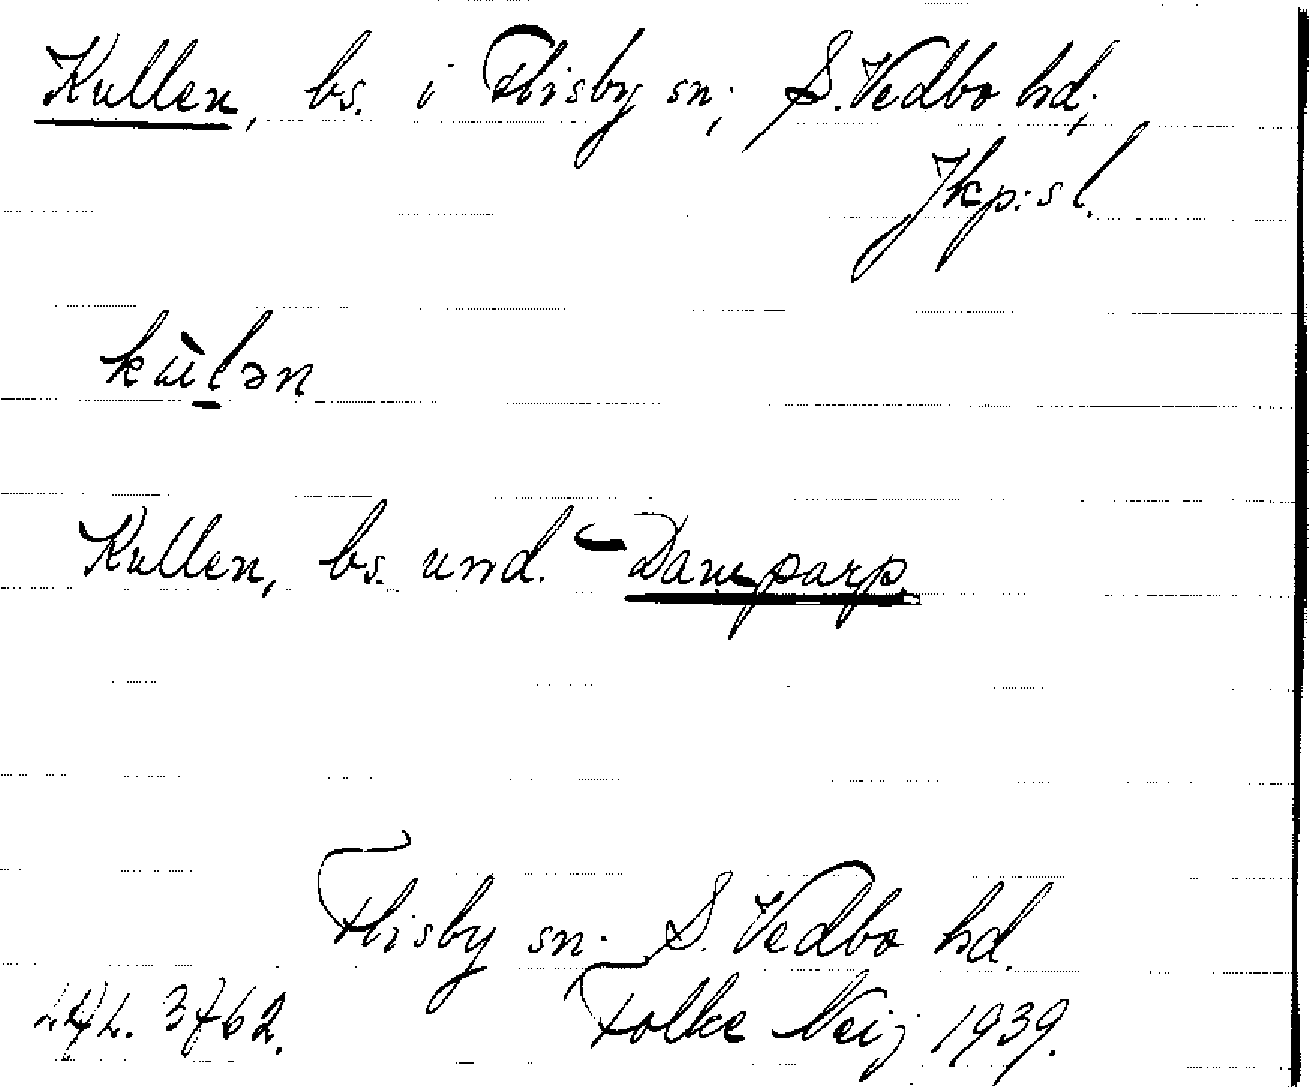 Kullen, bs. i Flisby sn; S. Vedbo hd;
Jkp:s l.
kùlən
Kullen, bs. und. Damparp
Flisby sn. S. Vedbo hd.
3762. Folke Neij 1939.